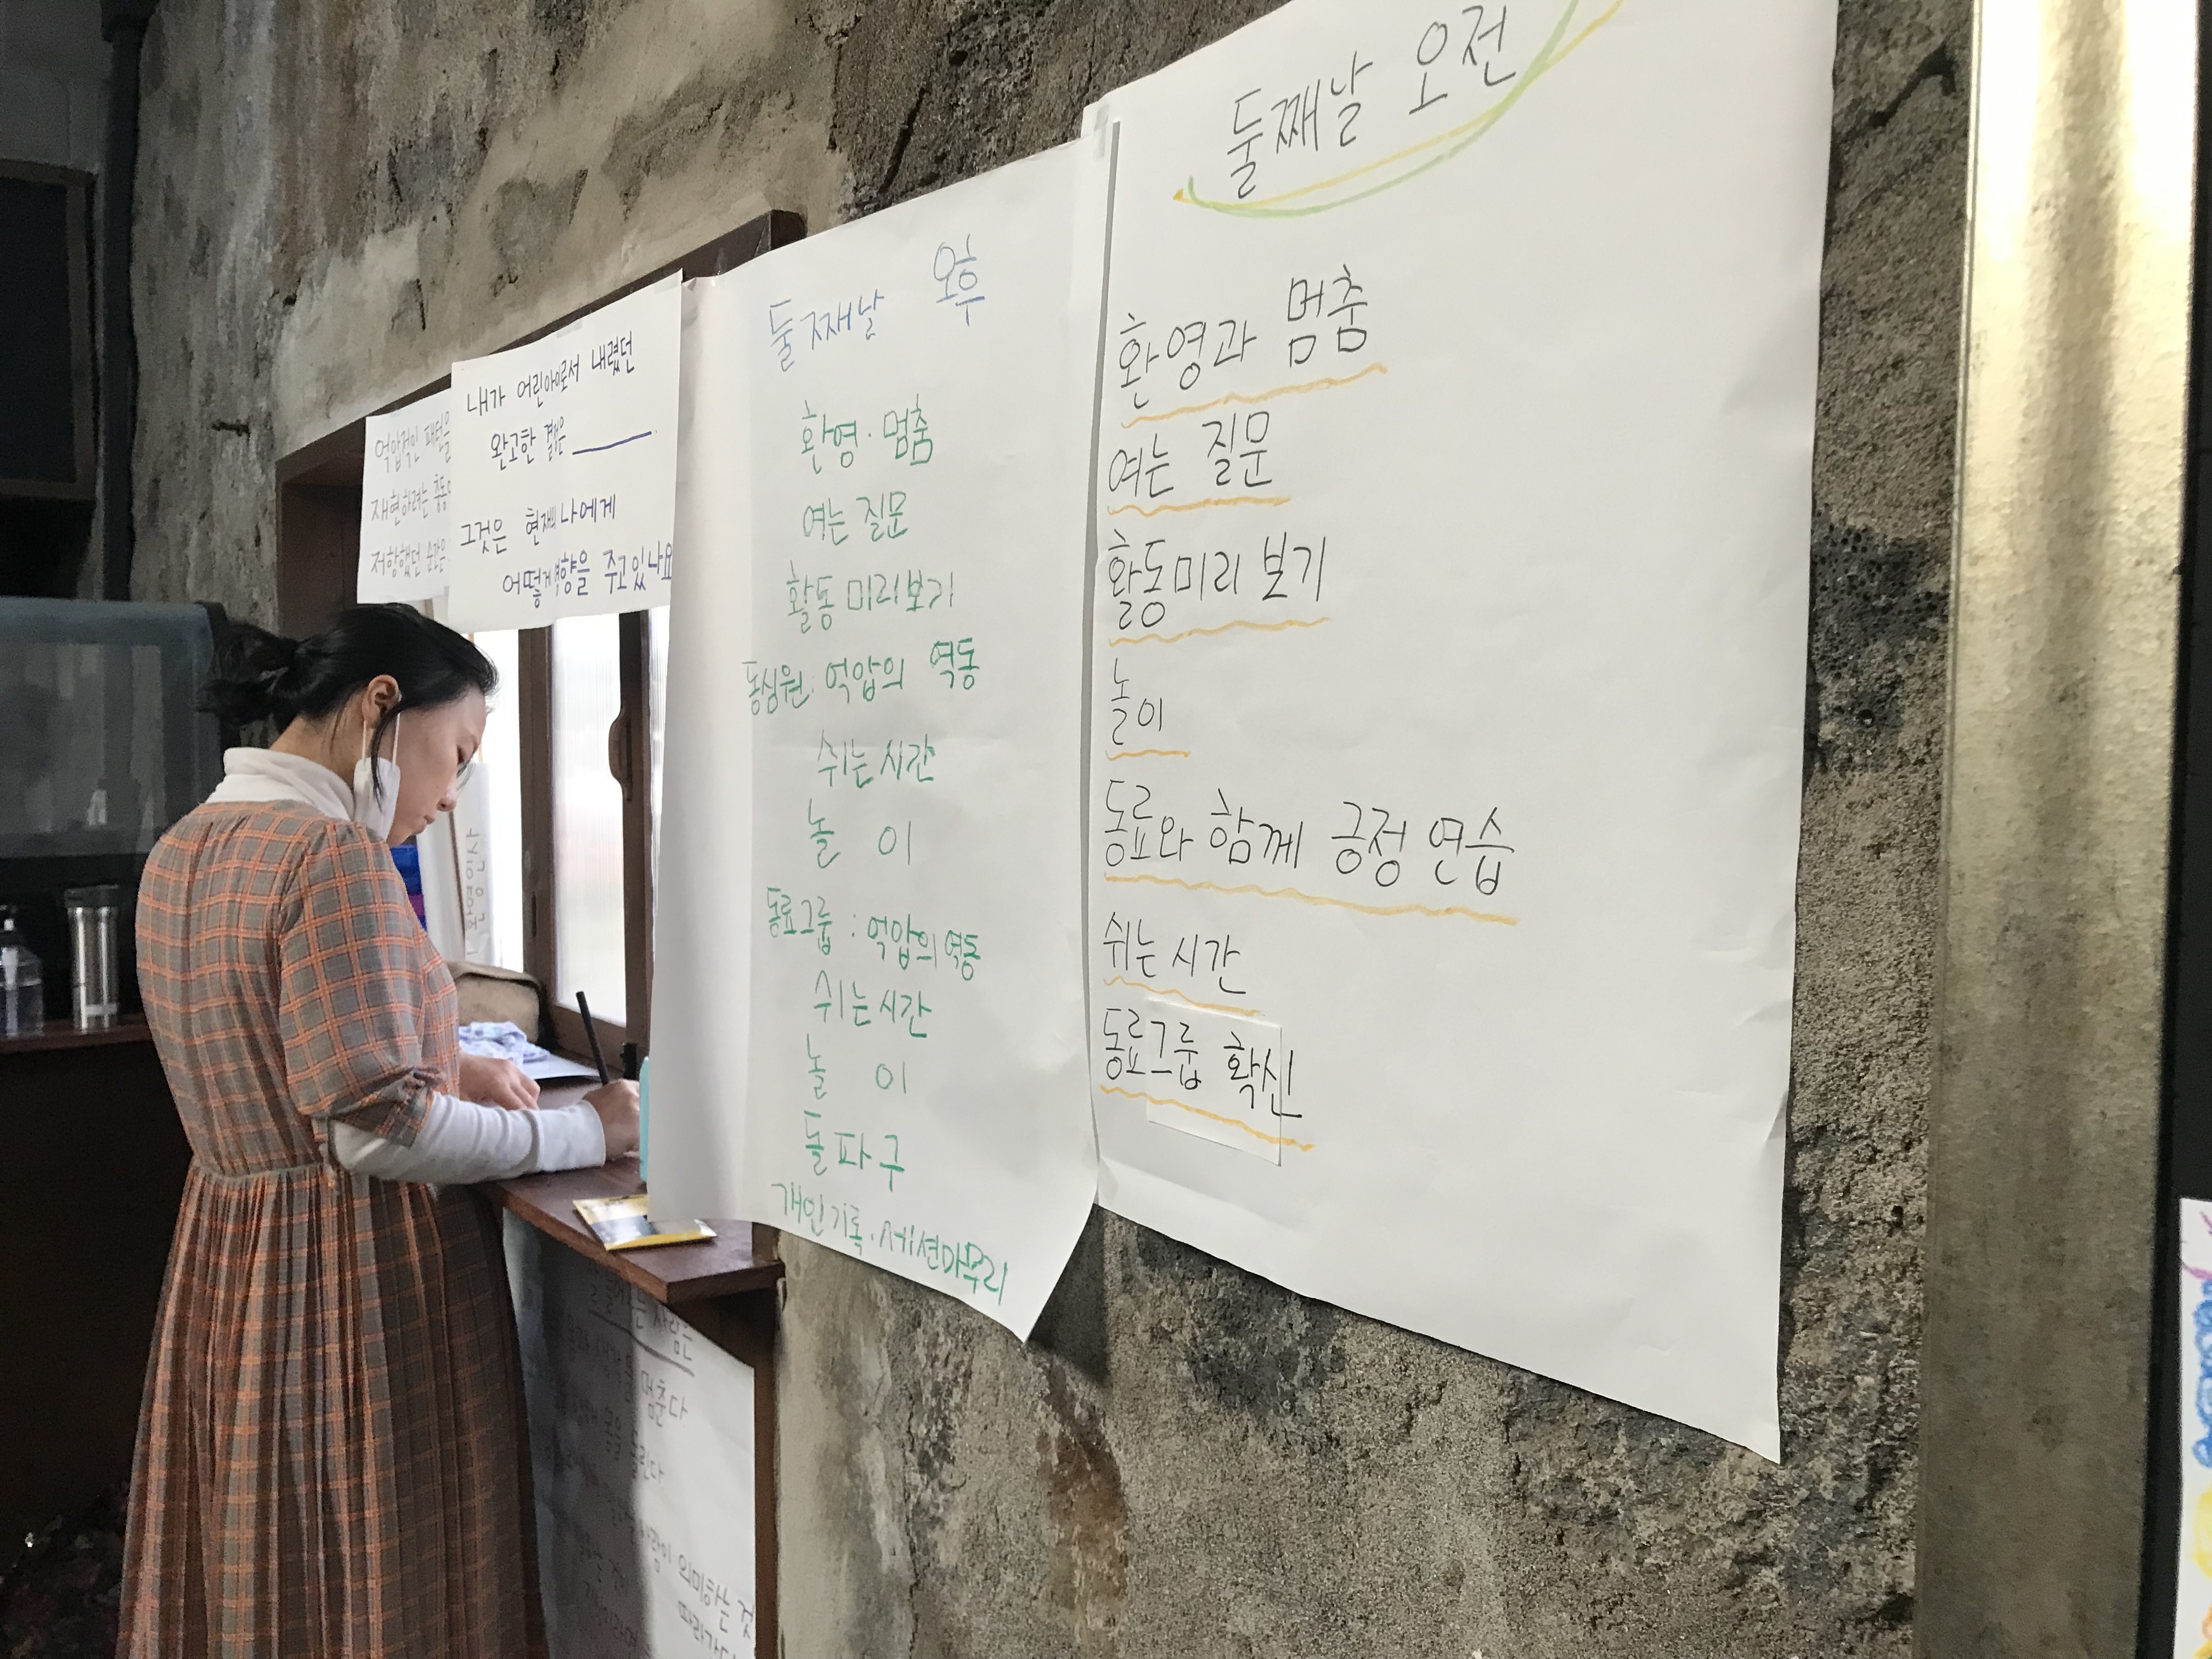 억압적인 패턴을
재현하려는 충동
저항했던 순간은
내가 어린아이로서 내렸던
완고한 결정은
그것은 현재의 나에게
어떻게 영향을 주고 있나요
둘째날 오후
환영·멈춤
여는 질문
활동 미리보기
동심원: 억압의 역동
쉬는 시간
놀이
동료그룹: 억압의 역동
쉬는 시간
놀이
돌파구
개인기록·세션마무리
둘째날 오전
환영과 멈춤
여는 질문
활동미리 보기
놀이
동료와 함께 긍정 연습
쉬는 시간
동료그룹 확신
사람은
멈춘다
의미하는 것